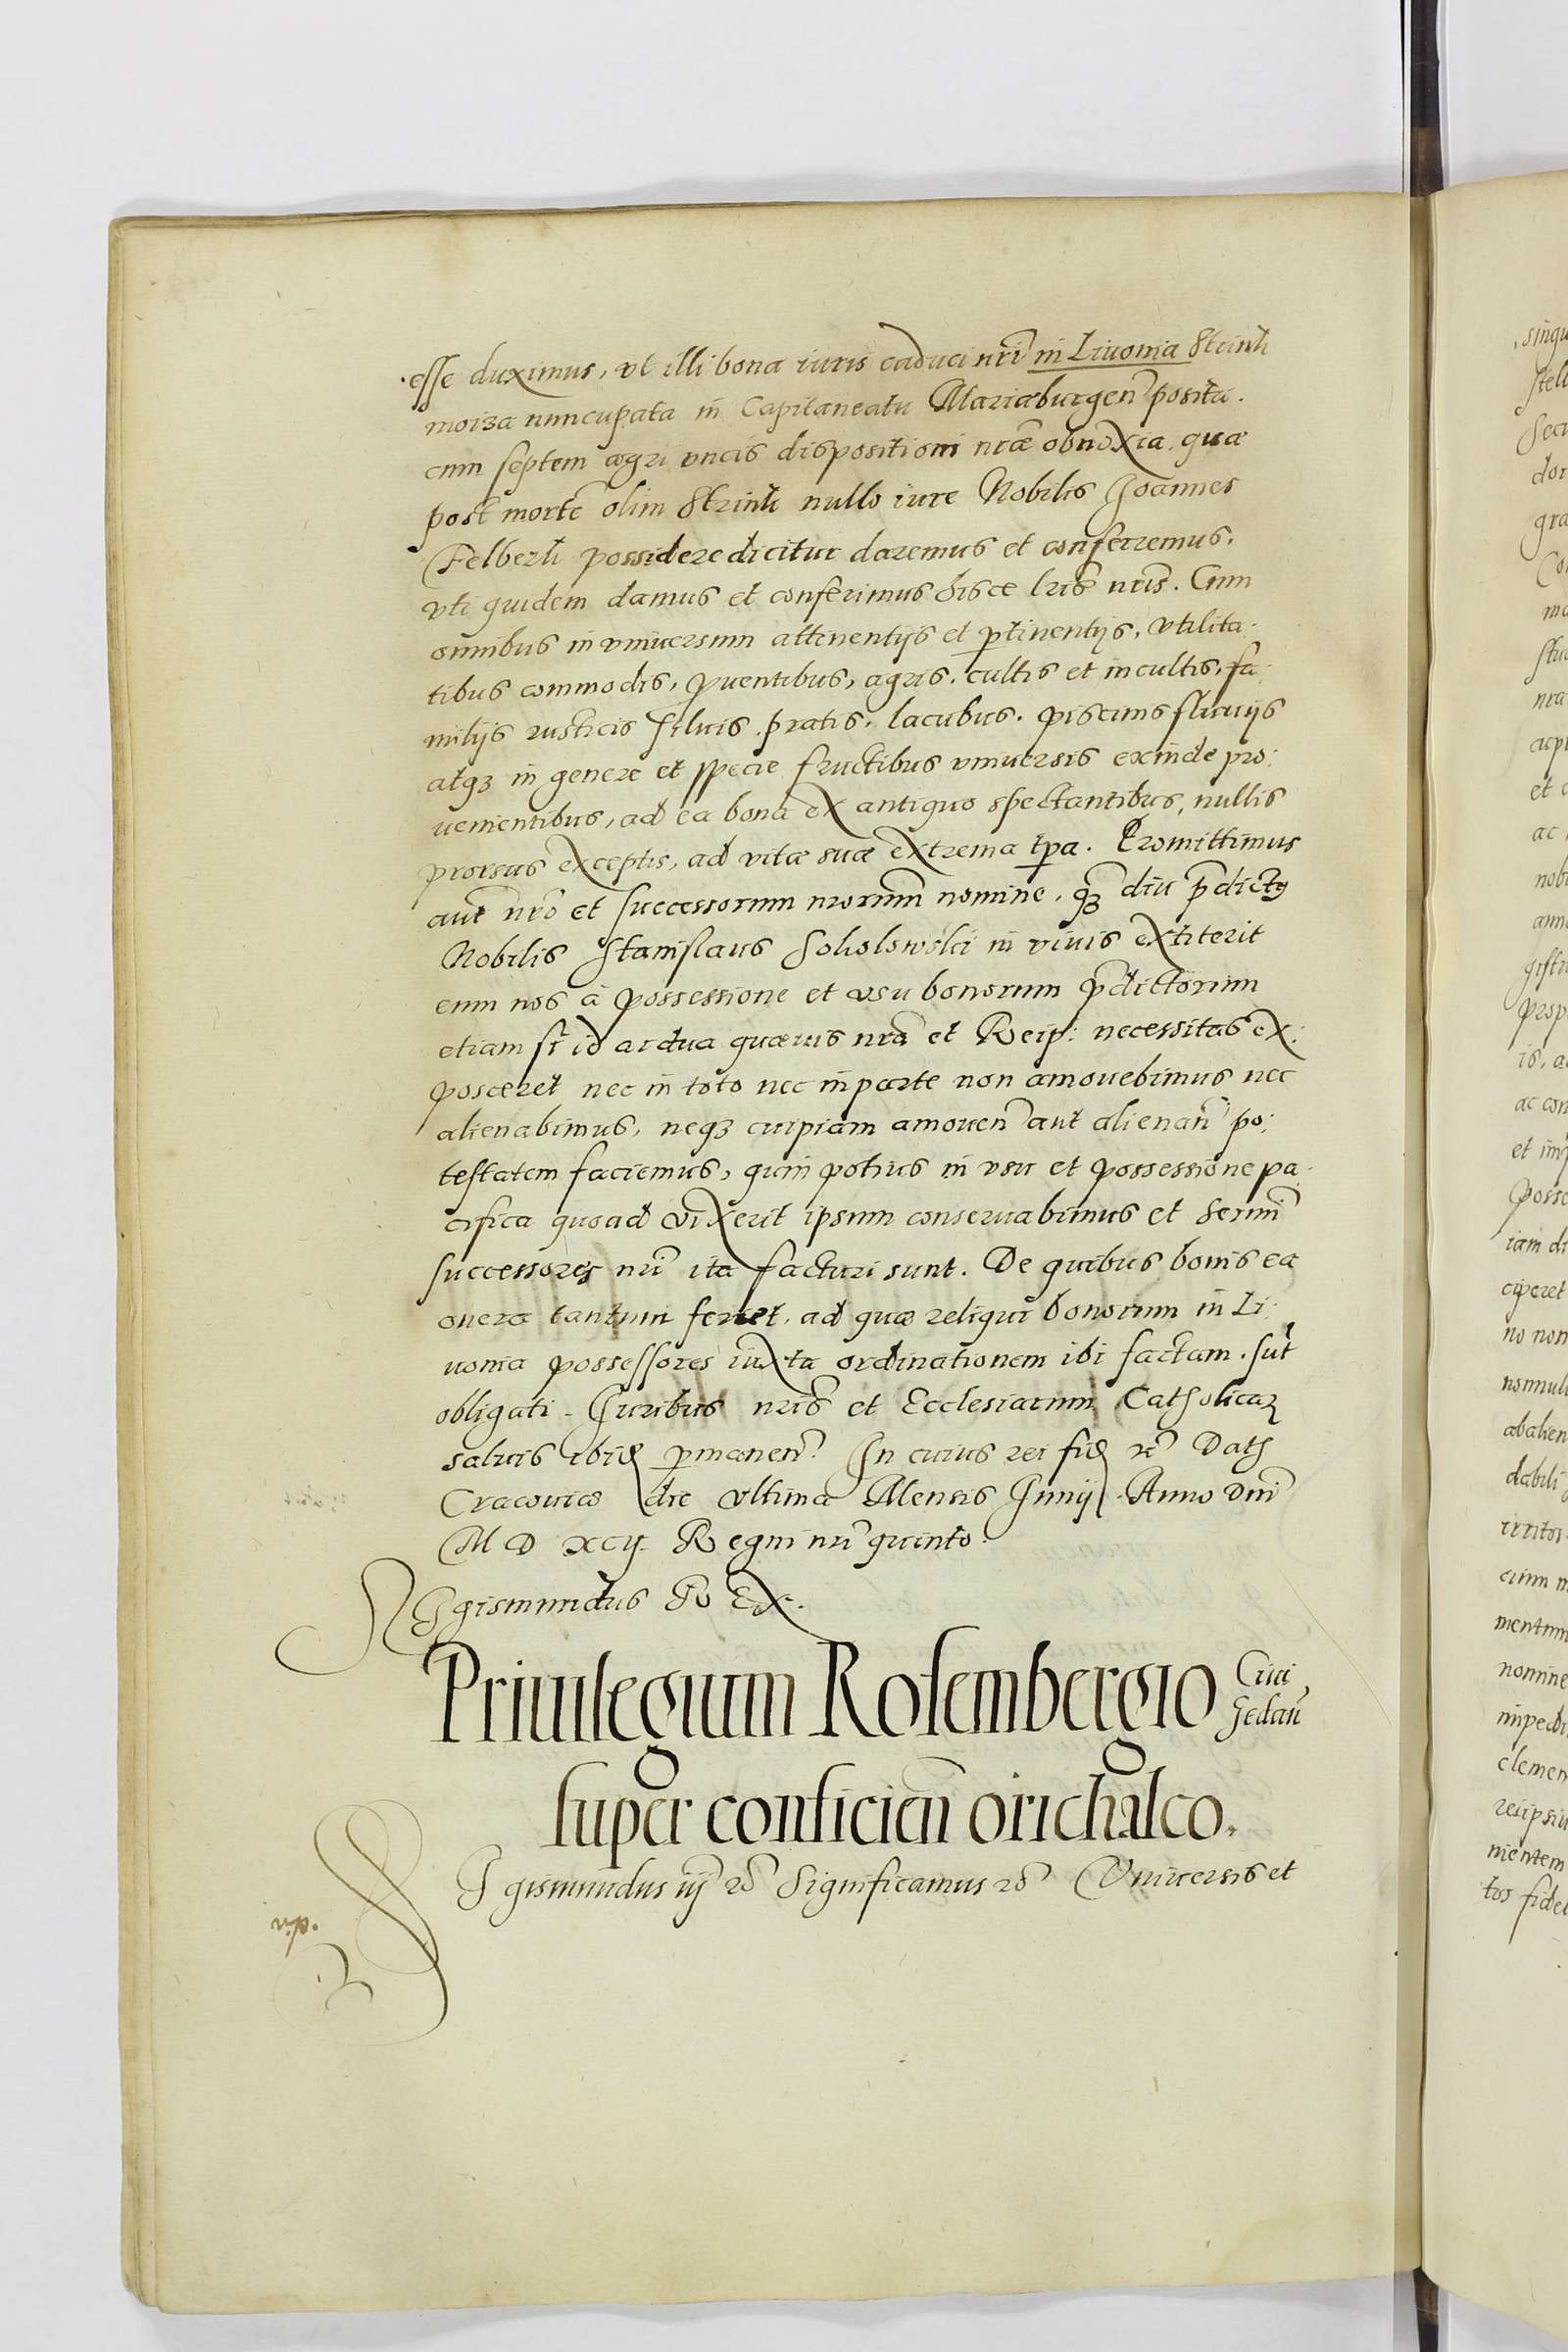 esse duximus, vt illi bona iuris caduci nri in Liuonia Strink
moiza nuncupata in Capitaneatu Mariæburgen posita.
cum septem agri vncis dispositioni nræ obnoxia, quæ
post morte olim Strink nullo iure Nobilis Joannes
Felberk possidere dicitur daremus et conferremus.
vti quidem damus et conferimus hisce lris nris. Cum
omnibus in vniuersum attinentijs et ptinentijs, vtilita
tibus commodis, prouentibus, agris. cultis et incultis, fa
milijs rusticis siluis, pratis, lacubus. piscinis fluuijs
atq3 in genere et specie fructibus vniuersis exinde pro:
uenientibus, ad ea bona ex antiquo spectantibus, nullis
prorsus exceptis, ad vitæ suæ extrema tpa. Promittimus
aut nro et successorum nrorum nomine, q3 diu pdictus
Nobilis Stanislaus Sokolowski in viuis extiterit
eum nos à possessione et vsu bonorum pdictorum
etiam si id ardua quæuis nra et Reip: necessitas ex:
posceret nec in toto nec in parte non amouebimus nec
alienabimus, neq3 cuipiam amouen aut alienan po:
testatem faciemus, quin potius in vsu et possessione pa
cifica quoad vixerit ipsum conseruabimus et sermi
successores nri ita facturi sunt. De quibus bonis ea
onera tantum feret, ad quæ reliqui bonorum in Li:
uonia possessores iuxta ordinationem ibi factam. sut
obligati. Juribus nris et Ecclesiarum Catholicar
saluis ibid pmanen. In cuius rei fid rc Dath
Cracouiæ die vltima Mensis Junij Anno Dni
M D XCij. Regni nri quinto.
Sigismundus REX.
Priuilegium Rosembergio Ciui
Gedan
super conficien orichalco.
Sigismundus iij rc Significamus rc Vniuersis et